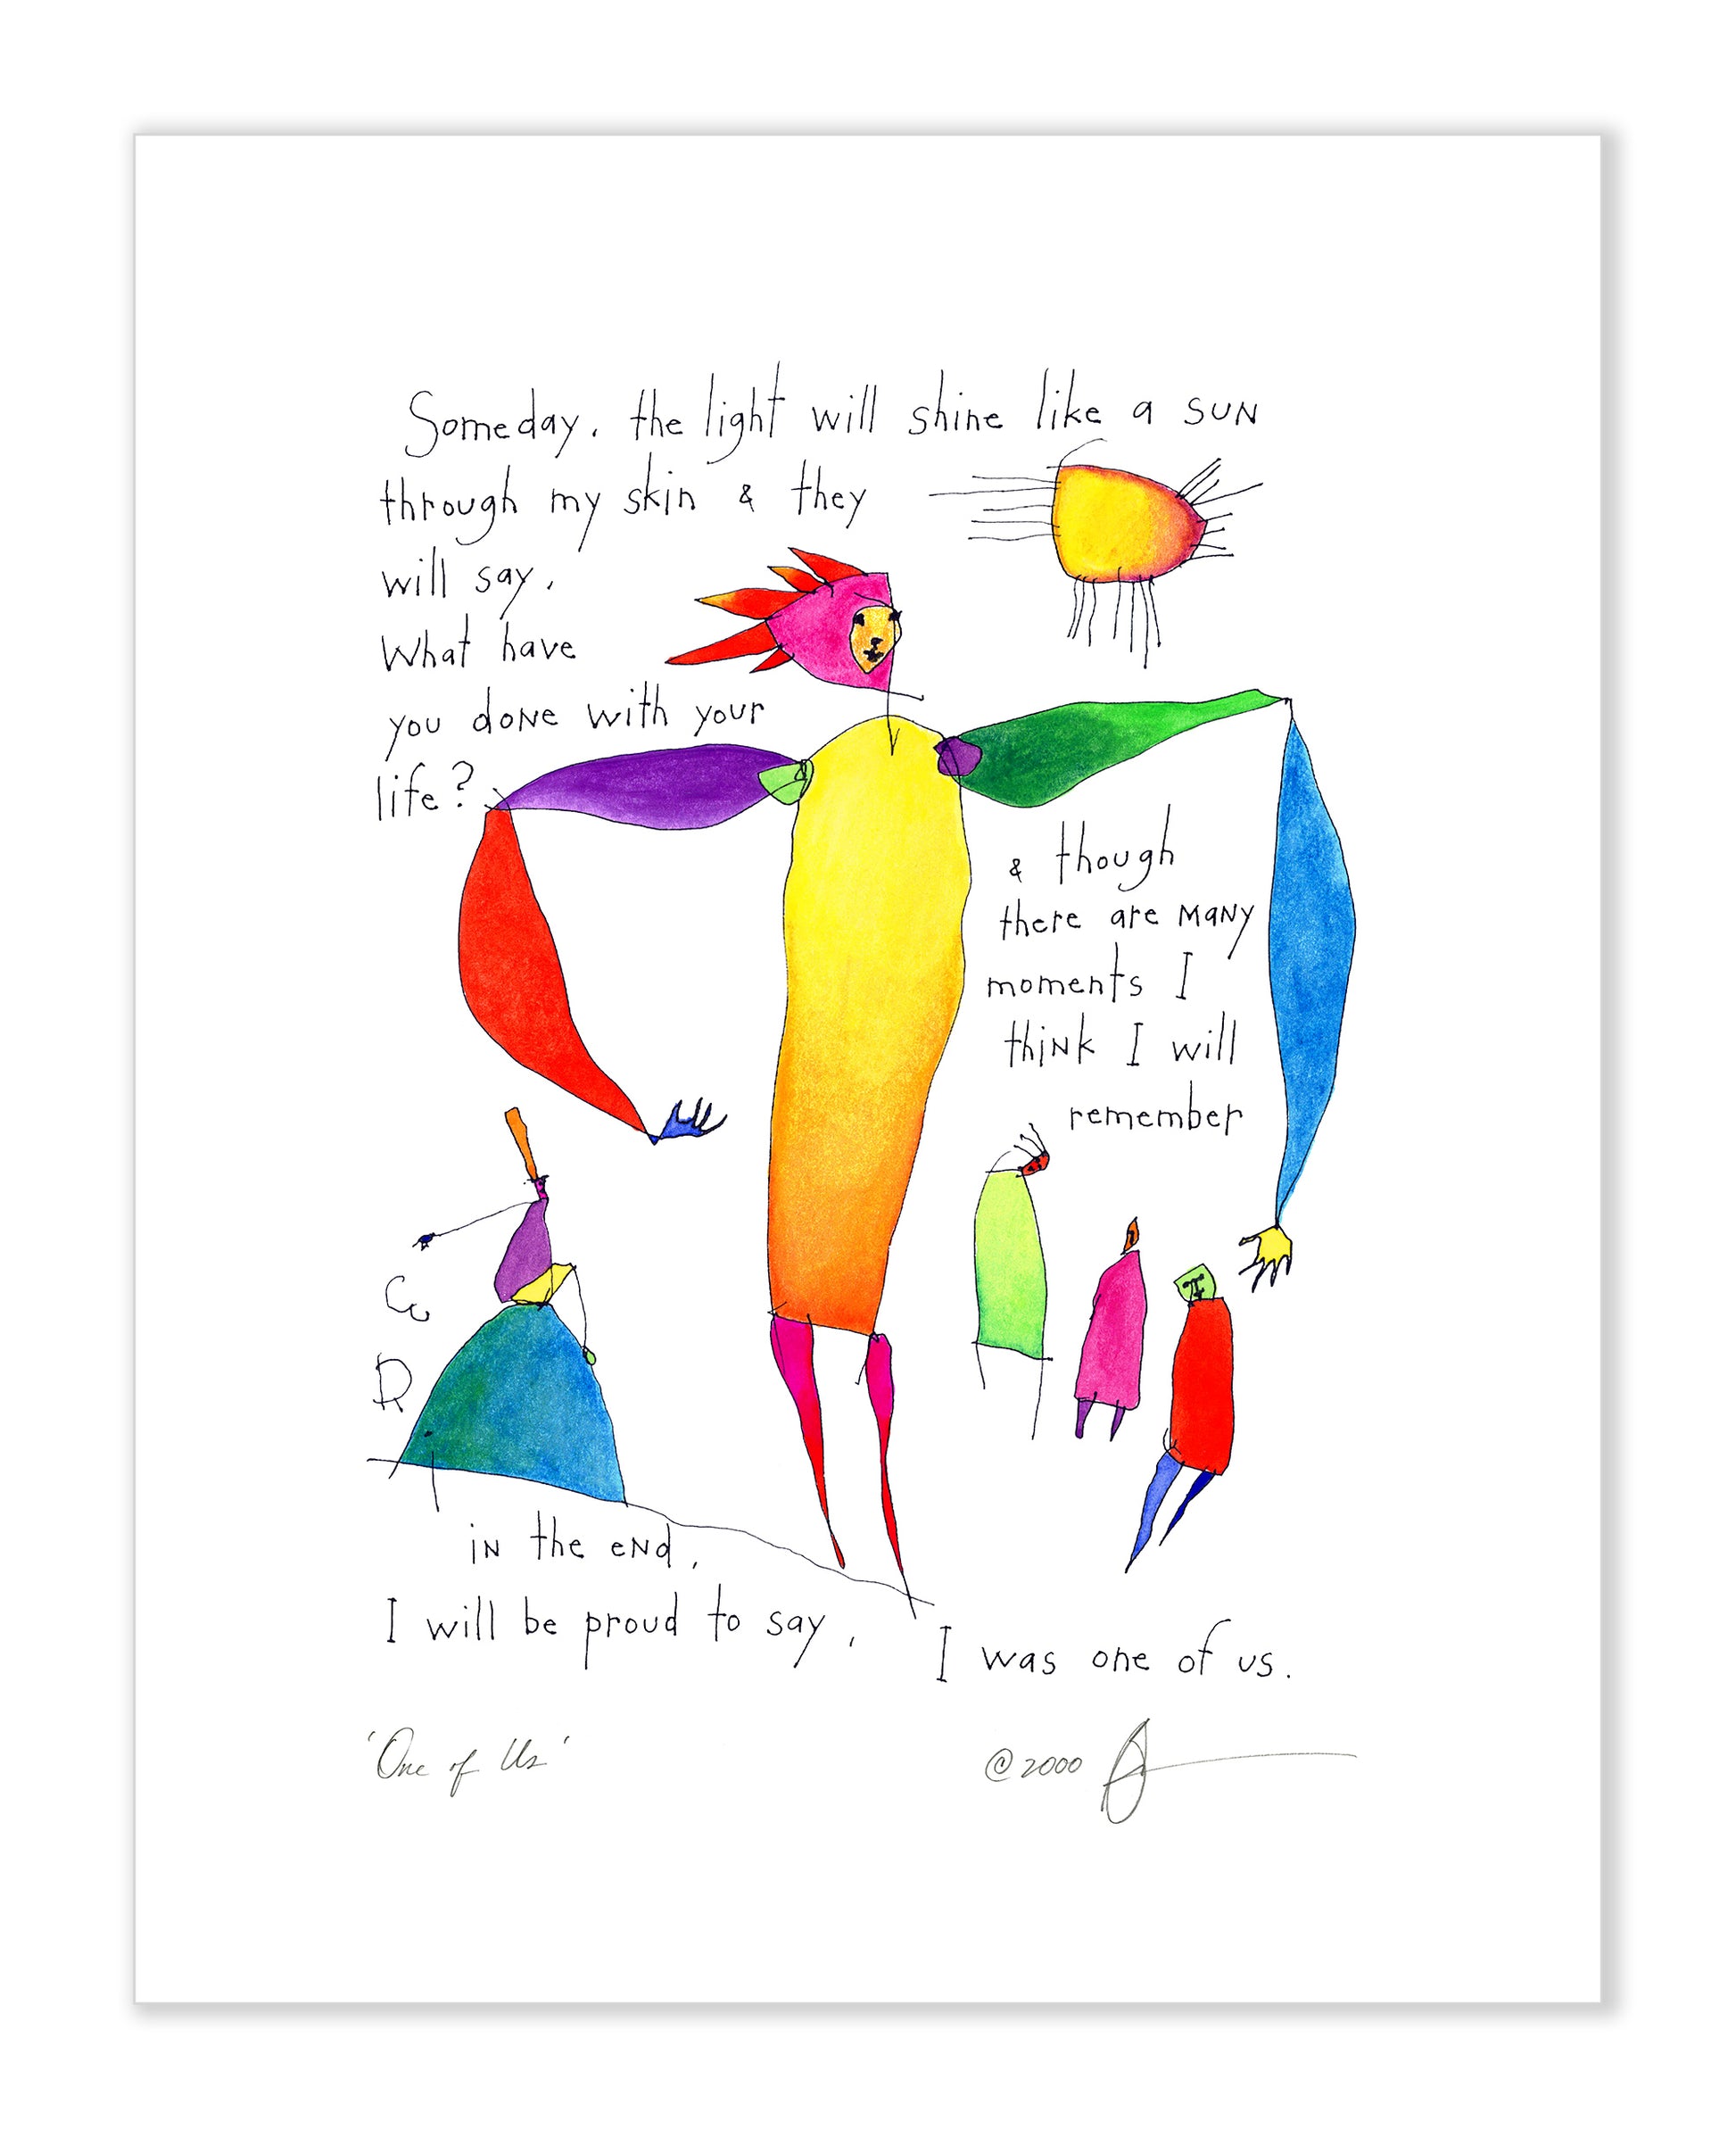 Someday, the light will shine like a SUN
through my skin & they
will say,
What have
you done with your
life?
& though
there are many
moments I
think I will
remember
in the end,
I will be proud to say,
I was one of us.
'One of Us'
©2000